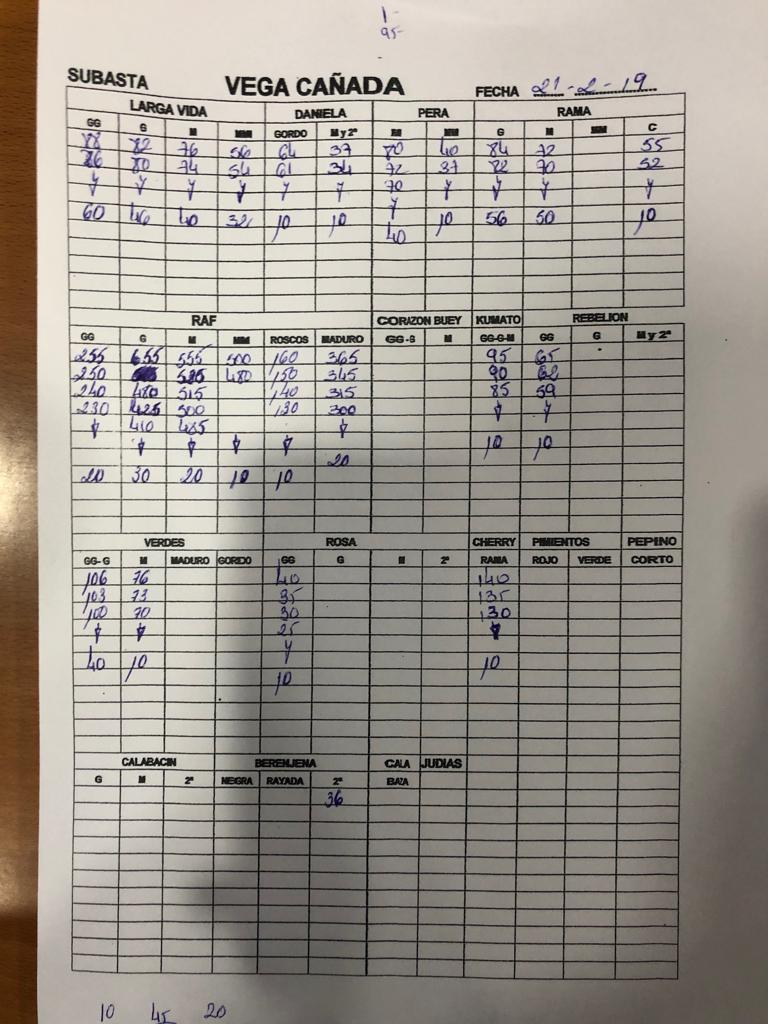 1-
95-
SUBASTA VEGA CAÑADA FECHA 21-2-19
LARGA VIDA DANIELA PERA RAMA
GG G M MM GORDO M y 2ª M MM G M MM C
88 82 76 56 64 37 80 40 84 72 55
86 80 74 54 61 34 72 37 82 70 52
y y y y y y 70 y y y y
60 46 40 32 10 10 y 10 56 50 10
40
RAF CORAZON BUEY KUMATO REBELION
GG G M MM ROSCOS MADURO GG-G M GG-G-M GG G M y 2ª
255 655 555 500 160 365 95 65
250 525 480 150 345 90 62
240 480 515 140 315 85 59
230 425 500 130 300
410 485
10 10
20
20 30 20 10 10
VERDES ROSA CHERRY PIMIENTOS PEPINO
GG-G M MADURO GORDO GG G M 2ª RAMA ROJO VERDE CORTO
106 76 40 140
103 73 35 135
100 70 30 130
25
40 10 y 10
10
CALABACIN BERENJENA CALA JUDIAS
G M 2ª NEGRA RAYADA 2ª BAZA
36
10 45 20